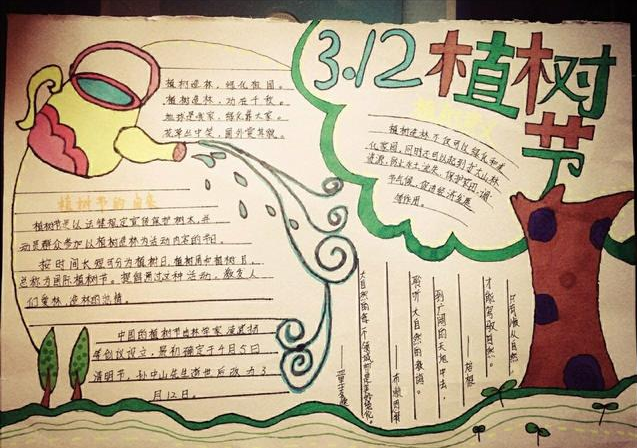 3.12 植树
节
植树造林，绿化校园。
植树造林，功在千秋。
花草丛中笑，园外赏其貌。
植树造林不仅可以绿化和美
化家园，同时还可以起到扩大山林
资源、防止水土流失、保护农田、调
节气候、促进经济发展
等作用。
植树节的由来
植树节是以法律规定宣传保护树木，并
动员群众参加以植树造林为活动内容的节日。
按时间长短可分为植树日、植树周和植树月，
总称为国际植树节。提倡通过这种活动，激发人
们爱林、造林的热情。
中国的植树节由林学家凌道扬
等倡议设立，最初确定于4月5日
清明节，孙中山先生逝世后改为3
月12日。
只有服从自然，
才能驾驭自然。
培根
到广阔的天地中去，
聆听大自然的教诲。
布赖恩特